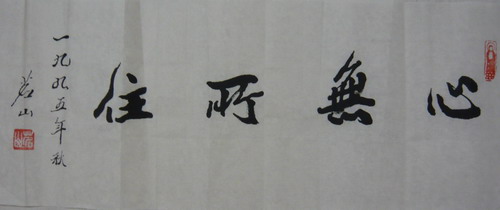 心無所住
一九九五年秋
茗山